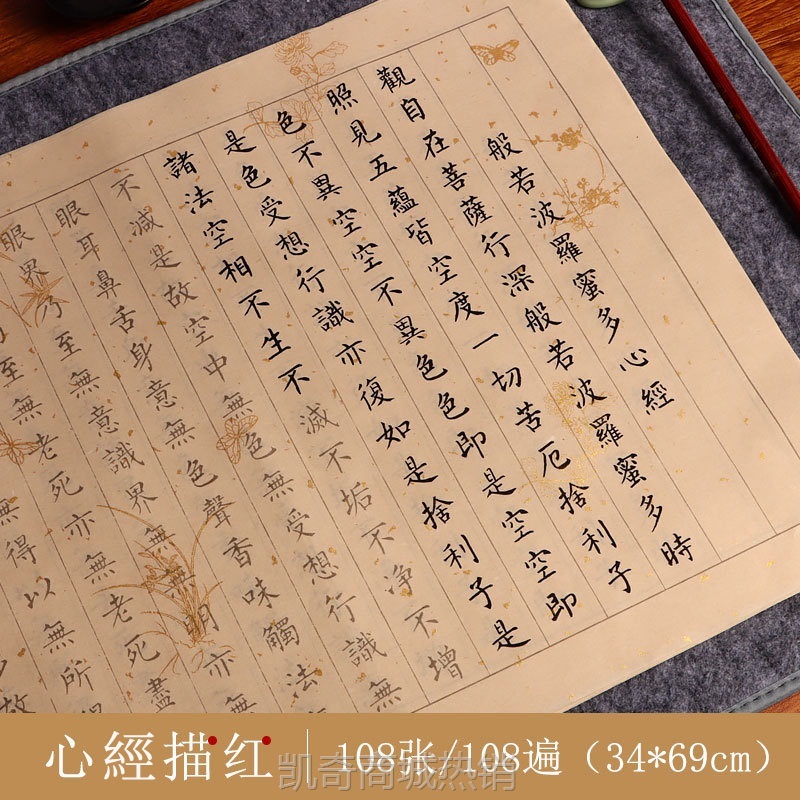 般若波羅蜜多心經
觀自在菩薩行深般若波羅蜜多時
照見五蘊皆空度一切苦厄捨利子
色不異空空不異色色即是空空即
是色受想行識亦復如是捨利子是
諸法空相不生不滅不垢不净不增
不減是故空中無色無受想行識無
眼耳鼻舌身意無色聲香味觸法
眼界乃至無意識界無無明亦無
至無老死亦無老死盡
無得以無所
故
心經描红 108张/108遍（34*69cm）
凯奇商城热销